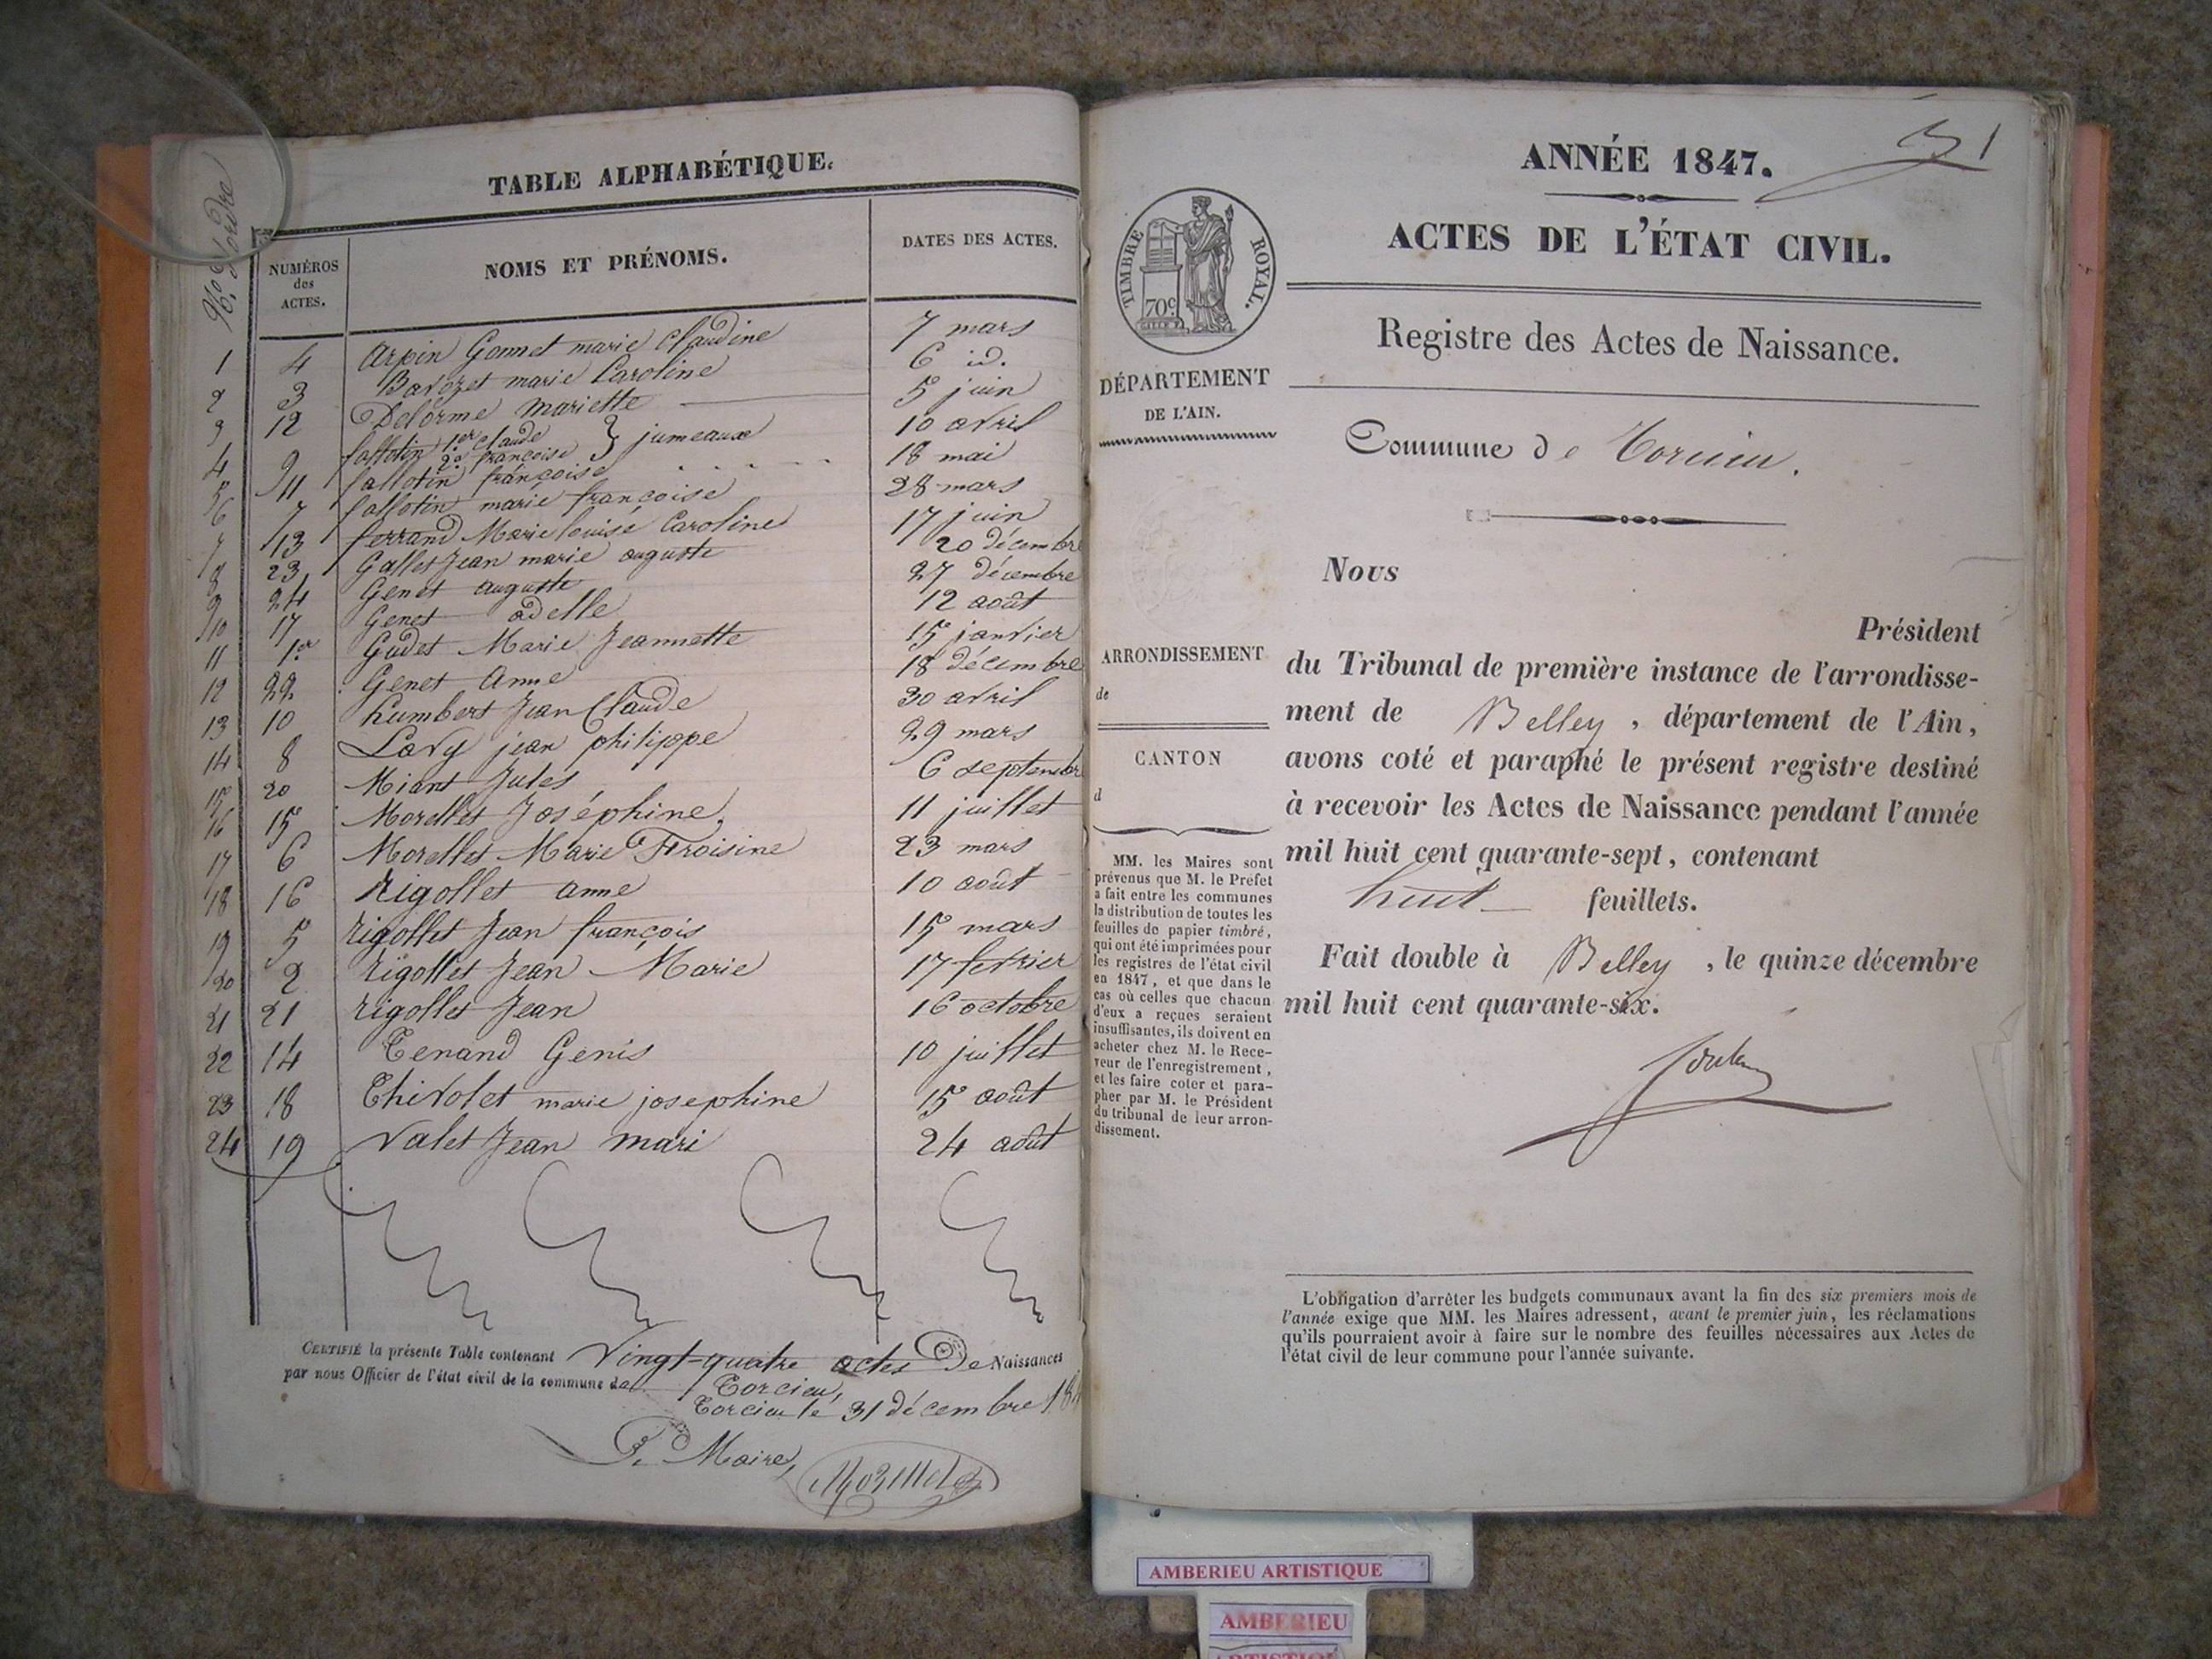 No d'ordre
TABLE ALPHABÉTIQUE.
NUMÉROS des ACTES. NOMS ET PRÉNOMS. DATES DES ACTES.
1 4 Arpin Gonnet marie Claudine 7 mars
2 3 Bavozet marie Caroline 6 id.
3 12 Delorme Mariette 5 juin
4 9 fallotin 1er claude 2e françoise } jumeaux 10 avril
5 11 fallotin françoise 18 mai
6 7 fallotin marie françoise 28 mars
7 13 ferrand Marie louise Caroline 17 juin
8 23 Gallet Jean marie auguste 20 décembre
9 24 Genet auguste 27 décembre
10 17 Genet adelle 12 août
11 1er Gudet Marie Jeannette 15 janvier
12 22 Genet Anne 18 décembre
13 10 humbert Jean Claude 30 avril
14 8 Lavy jean philippe 29 mars
15 20 Miant Jules 6 septembre
16 15 Morellet Joséphine, 11 juillet
17 6 Morellet Marie Froisine 23 mars
18 16 Rigollet anne 10 août
19 5 rigollet Jean françois 15 mars
20 2 rigollet Jean Marie 17 fevrier
21 21 rigollet Jean 16 octobre
22 14 Tenand Genis 10 juillet
23 18 Thivolet marie josephine 15 août
24 19 Valet Jean mari 24 août
CERTIFIÉ la présente Table contenant Vingt-quatre actes De Naissances
par nous Officier de l'état civil de la commune de Torcieu,
Torcieu le 31 décembre 184
Le Maire,
Morellet
51
ANNÉE 1847.
ACTES DE L'ÉTAT CIVIL.
TIMBRE ROYAL.
70c
Registre des Actes de Naissance.
DÉPARTEMENT
DE L'AIN.
Commune de Torcieu.
Nous
Président
ARRONDISSEMENT
de
CANTON
d
du Tribunal de première instance de l'arrondisse-
ment de Belley, département de l'Ain,
avons coté et paraphé le présent registre destiné
à recevoir les Actes de Naissance pendant l'année
mil huit cent quarante-sept, contenant
huit feuillets.
Fait double à Belley, le quinze décembre
mil huit cent quarante-six.
MM. les Maires sont
prévenus que M. le Préfet
a fait entre les communes
la distribution de toutes les
feuilles de papier timbré,
qui ont été imprimées pour
les registres de l'état civil
en 1847, et que dans le
cas où celles que chacun
d'eux a reçues seraient
insuffisantes, ils doivent en
acheter chez M. le Rece-
veur de l'enregistrement,
et les faire coter et para-
pher par M. le Président
du tribunal de leur arron-
dissement.
L'obligation d'arrêter les budgets communaux avant la fin des six premiers mois de
l'année exige que MM. les Maires adressent, avant le premier juin, les réclamations
qu'ils pourraient avoir à faire sur le nombre des feuilles nécessaires aux Actes de
l'état civil de leur commune pour l'année suivante.
AMBERIEU ARTISTIQUE
AMBERIEU
ARTISTIQUE